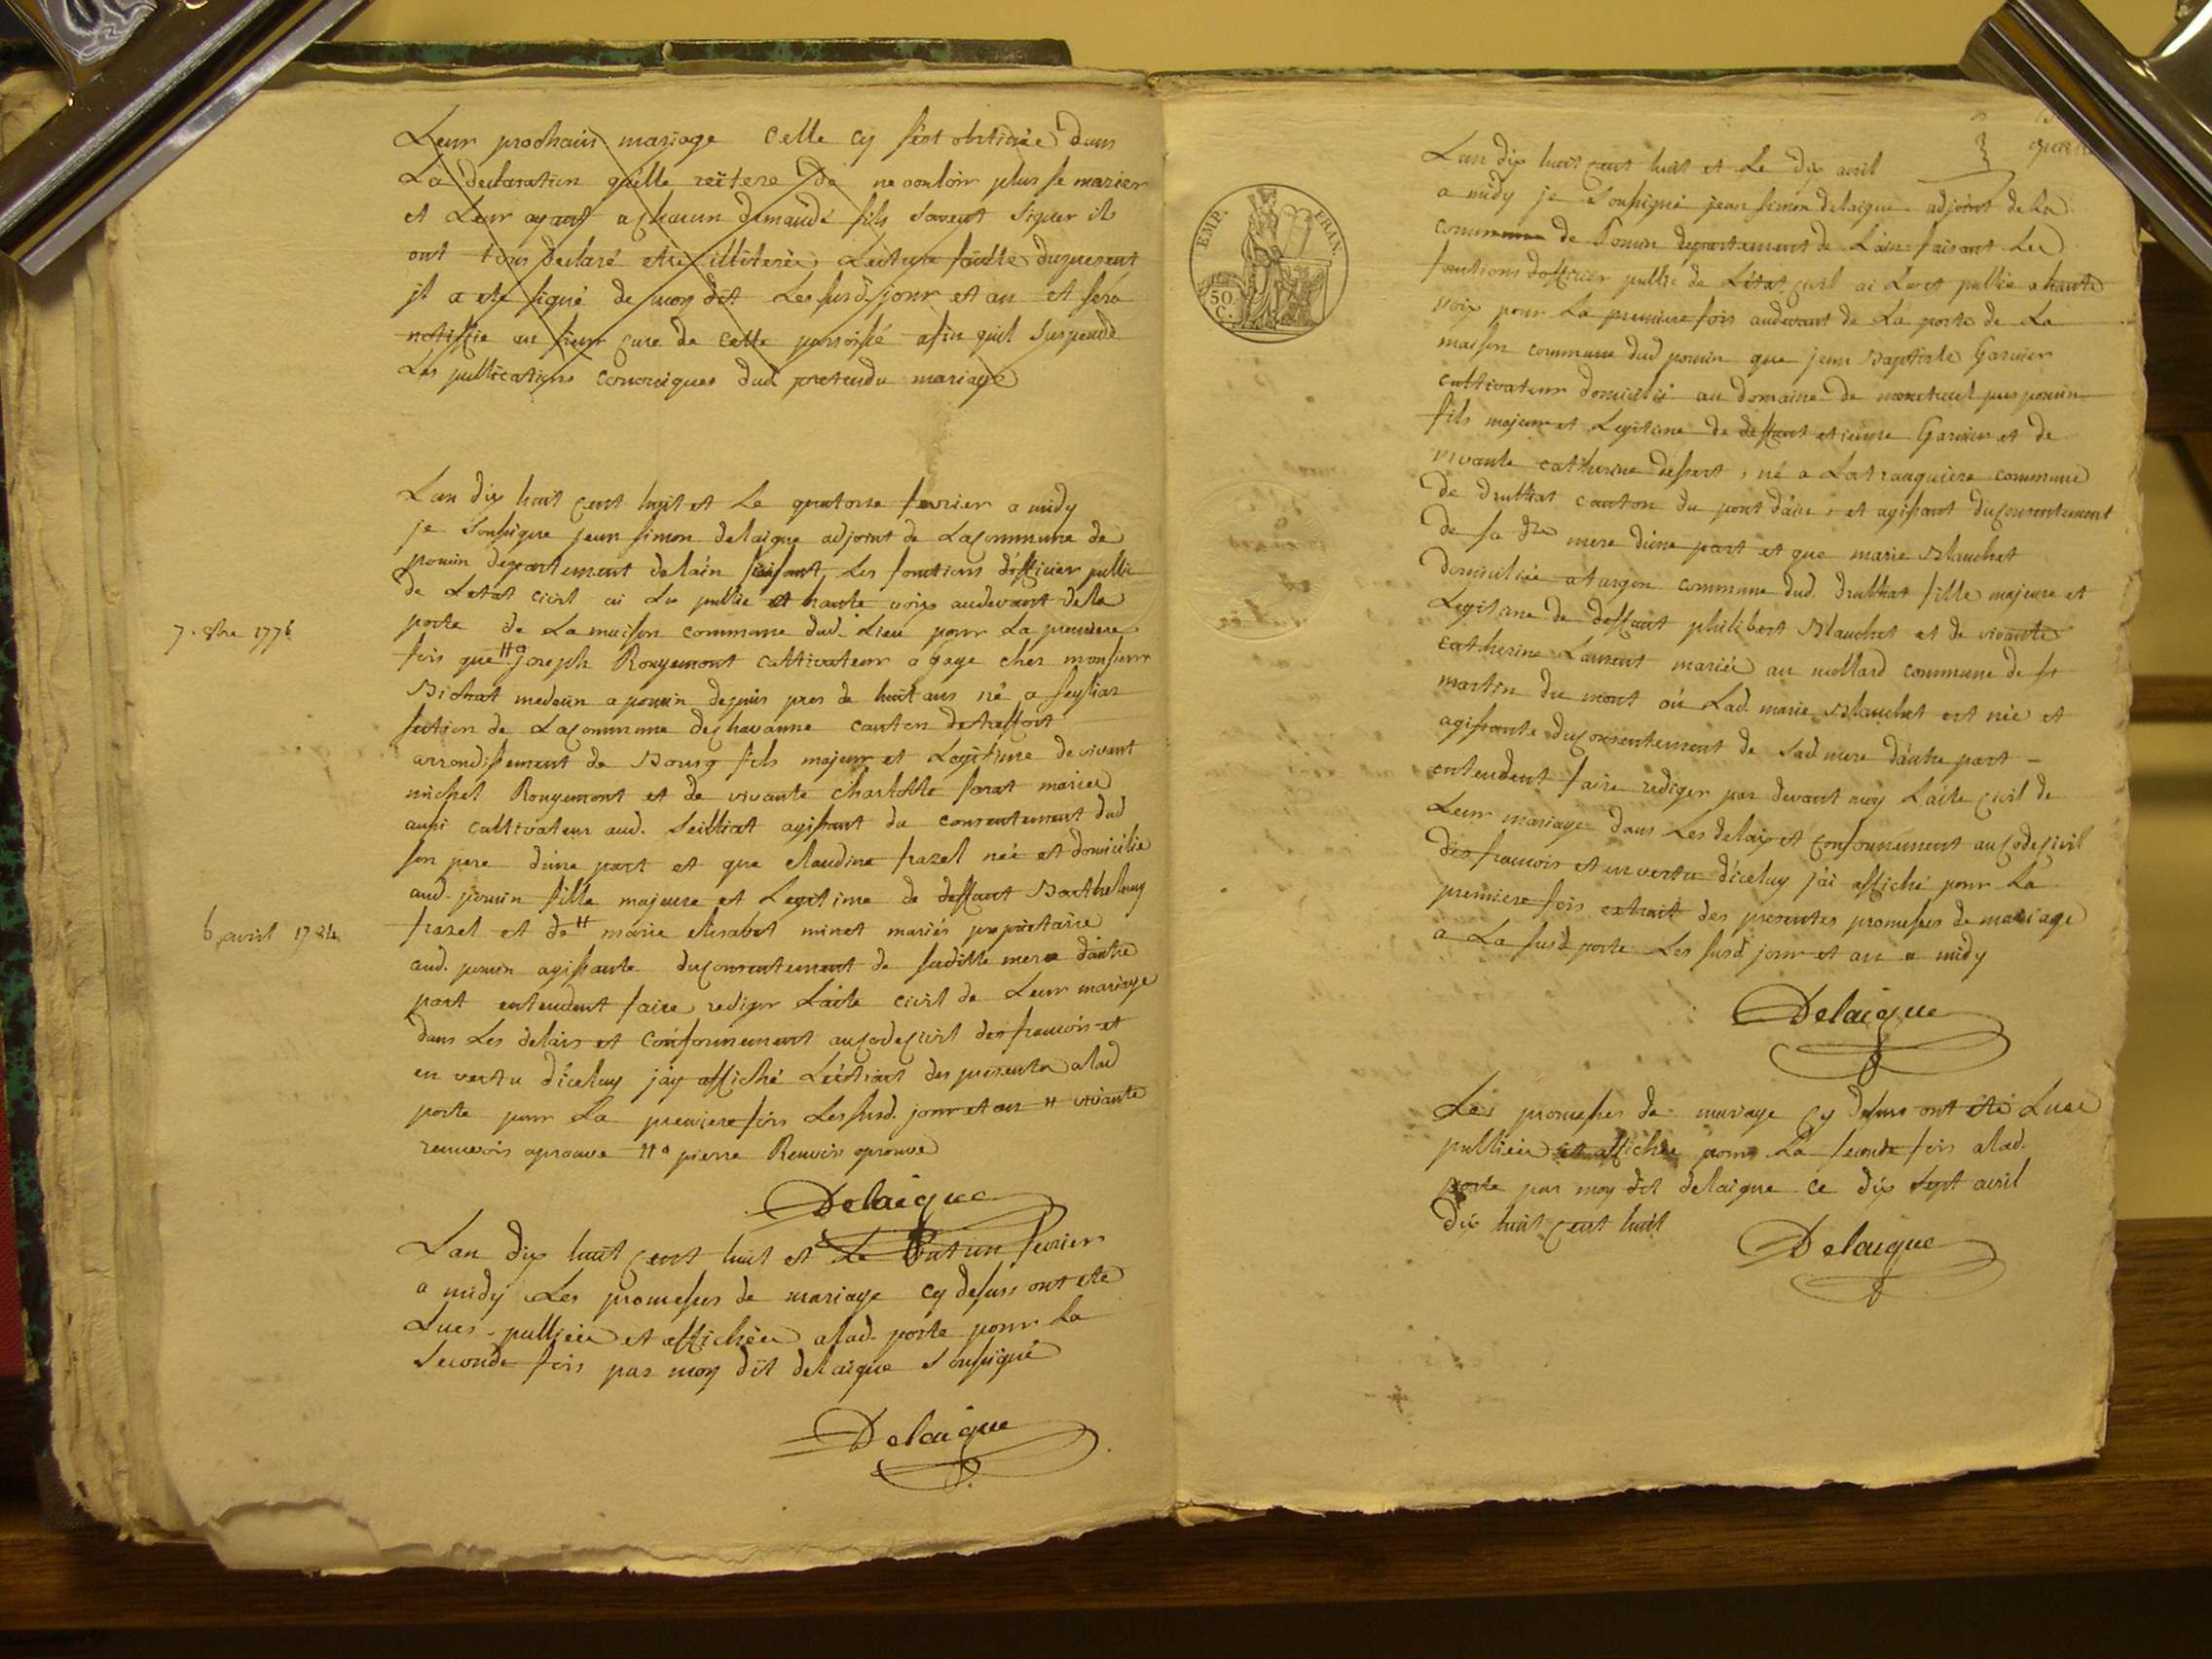 Leur prochain mariage celle cy s'est obstinée dans
La declaration quelle reïtere de ne vouloir plus se marier
et Leur ayant a chacun demandé s'ils savent signer ils
ont tous declaré etre illiterés Lecture faitte du present
jl a eté signé de moy dit Les susd. jour et an et sera
notiffie au sieur curé de cette parroisse afin quil suspende
Les publications canoniques dud pretendu mariage
Lan dix huit cent huit et Le quatorse fevrier a midy
je soussigne jean simon delaigue adjoint de La commune de
poncin departement de lain faisant Les fonctions d'officier public
de Letat civil ai Lu publie et haute voix audevant de la
porte de La maison commune dud. Lieu pour La premiere
7. 8bre 1776
fois que #a joseph Rougemont cultivateur a gage chez monsieur
Bichat medecin a poncin depuis pres de huit ans né a
section de La commune de chavanne canton de treffort
arrondissement de Bourg fils majeur et Legitime de vivant
michel Rougemont et de vivante charlotte mariés
aussi cultivateur aud. agissant du consentement dud
son pere d'une part et que claudine frazel née et domicilie
aud. poncin fille majeure et Legitime de deffunt Barthelemy
6 avril 1784
frazel et de # marie elisabet minet mariés propriétaire
aud. poncin agissante du consentement de saditte mere d'autre
part entendent faire rediger L'acte civil de Leur mariage
dans Les delais et conformement au code civil des francois et
en vertu d'iceluy j'ay affiché L'extrait des presentes a lad
porte pour La premiere fois Les susd. jour et an # vivante
renvois aprouve #a pierre Renvoi aprouve
Delaigue
Lan dix huit cent huit et Le vint un fevrier
a midy Les promesses de mariage cy dessus ont eté
Lues publiées et affichées a lad. porte pour La
seconde fois par moy dit delaigue soussigné
Delaigue
Lan dix huit cent huit et Le dix avril
a midy je soussigné jean simon delaigue adjoint de La
commune de Poncin departement de L'ain faisant Les
fonctions d'officier public de L'état civil ai Lu et publié a haute
voix pour La premiere fois audevant de La porte de La
maison commune dud poncin que jean Baptiste Garnier
cultivateur domicilié au domaine de pres poncin
fils majeur et Legitime de deffunt etienne Garnier et de
vivante catherine , né a La tranquiere commune
de druillat canton du pont d'ain, et agissant du consentement
de sa dte mere d'une part et que marie Blanchet
domiciliée a turgon commune dud. druillat fille majeure et
Legitime de deffunt philibert Blanchet et de vivante
catherine Laurent mariée au mollard commune de st
martin du mont où Lad. marie Blanchet est née et
agissante du consentement de sad mere d'autre part -
entendent faire rediger par devant moy L'acte civil de
Leur mariage dans Les delais et conformement au code civil
des francois et en vertu d'iceluy j'ai affiché pour La
premiere fois extrait des presentes promesses de mariage
a La susd porte Les susd jour et an a midy
Delaigue
Les promesses de mariage cy dessus ont été Lues
publiées et affichées pour La seconde fois a lad.
porte par moy dit delaigue ce dix sept avril
dix huit cent huit
Delaigue
EMP. FRAN.
50 C.